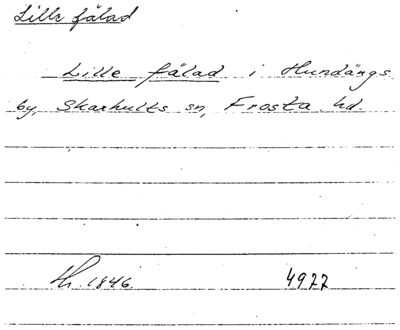 Lille fälad
Lille fälad i Hundängs
by, Skarhults sn, Frosta hd.
1846 4922